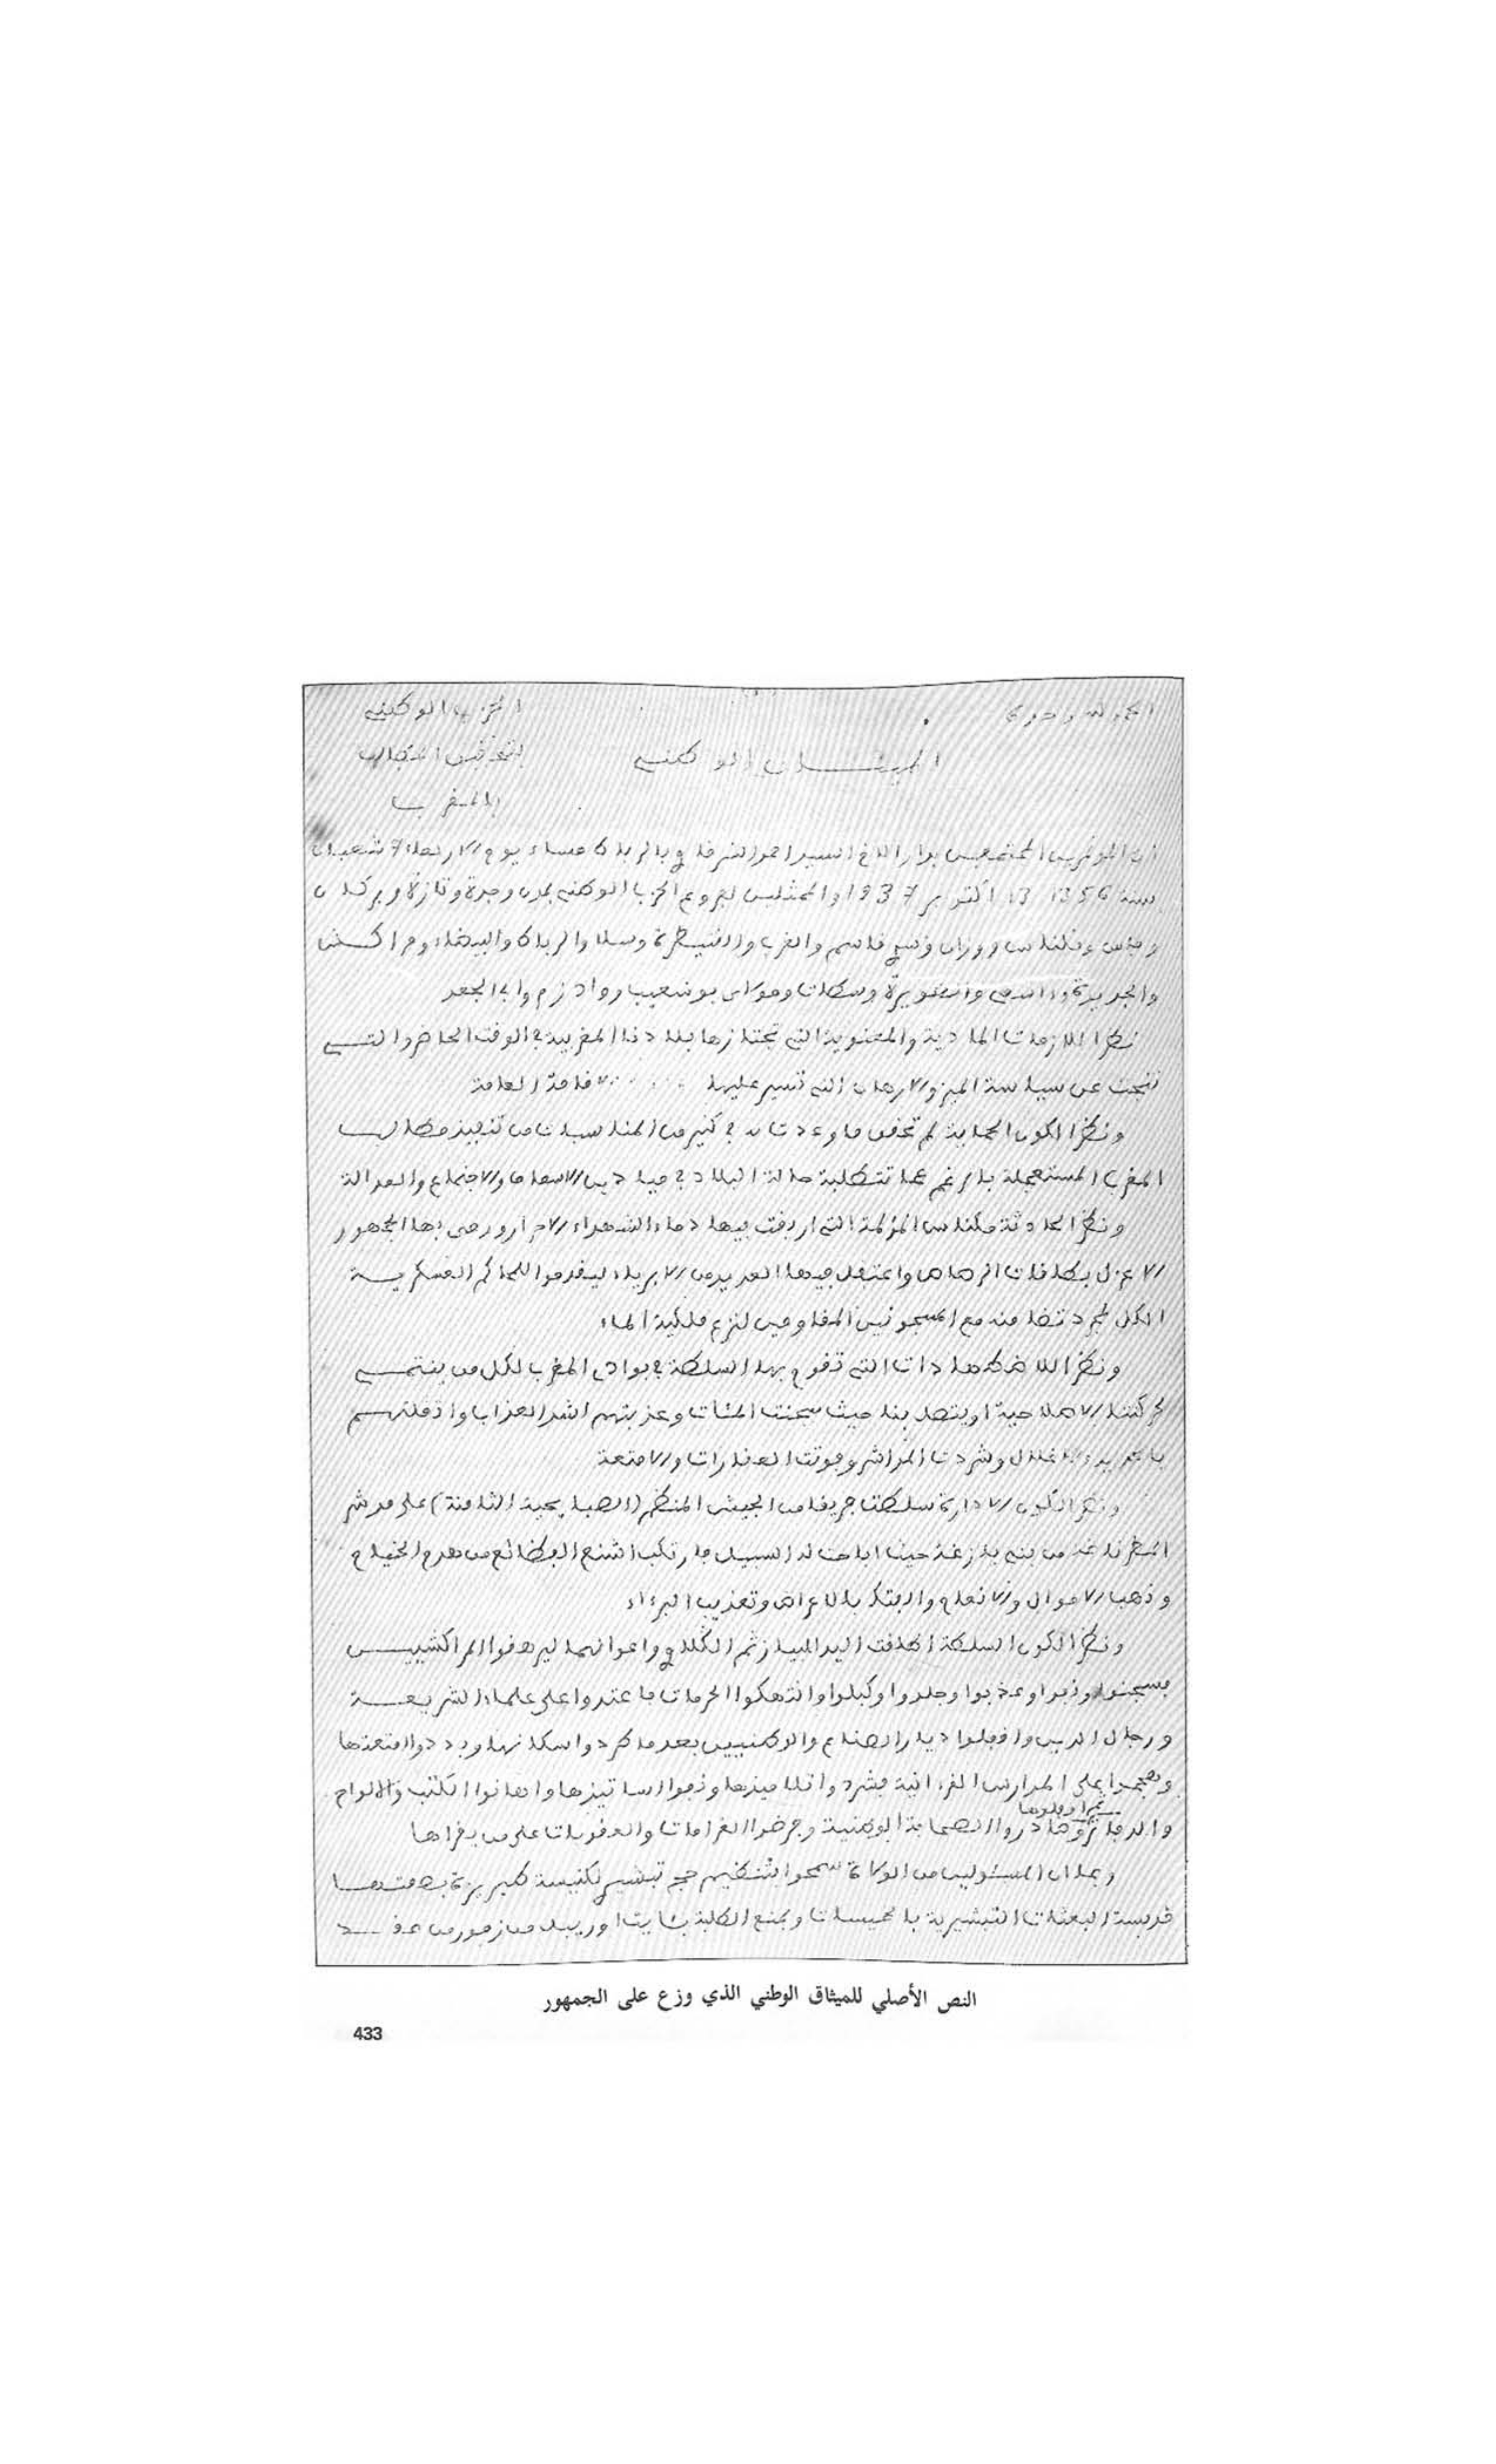 الحمد لله وحده
الحزب الوطني
لتحقيق المطالب
بالمغرب
الميثاق الوطني
ان المؤتمرين المجتمعين بدار الاخ السيد احمد الشرقاوي بالرباط مساء يوم الاربعاء 7 شعبان
سنة 1356 13 اكتوبر 1937 والممثلين لفروع الحزب الوطني بمدن وجدة وتازة وبركان
وفاس ومكناس ووزان وسوق والغرب والقنيطرة وسلا والرباط والبيضاء ومراكش
والجديدة والصويرة وسطات بوشعيب ووادزم وابي الجعد
نظرا للازمات المادية والمعنوية التي تجتازها بلادنا المغربية في الوقت الحاضر والتي
نتجت عن سياسة الميز والارهاب التي تسير عليها الاقامة العامة
ونظرا لكون الحماية لم تحقق ما وعدت به في كثير من المناسبات من تنفيذ مطالب
المغرب المستعجلة بالرغم عما تتطلبه حالة البلاد في ميادين الاسعاف والاجتماع والعدالة
ونظرا لحادثة مكناس المؤلمة التي اريقت فيها دماء الشهداء ورمي بها الجمهور
الاعزل بطلقات الرصاص واعتقل فيها العديد من الابرياء ليقدموا للمحاكم العسكرية
الكل لمجرد تضامنه مع المسجونين المقاومين لنزع ملكية الماء
ونظرا للاضطهادات التي تقوم بها السلطة في بوادي المغرب لكل من ينتمي
لحركتنا الاصلاحية او يتصل بنا حيث سجنت المئات وعذبتهم اشد العذاب واثقلتهم
بالحديد والاغلال وشردت المداشر وفوتت العقارات والامتعة
ونظرا لكون الادارة سلطت فريقا من الجيش المنظم (الصبايحية الثامنة) على مدشر
من بني يازغة حيث اباحت له السبيل فارتكب اشنع الفظائع من هدم الخيام
ونهب الاموال والانعام والفتك بالاعراض وتعذيب البرءاء
ونظرا لكون السلطة اطلقت اليد للبياز ثم الكلاوي واعوانهما ليرهقوا المراكشيين
فسجنوا ونفوا وعذبوا وجلدوا وكبلوا وانتهكوا الحرمات فاعتدوا على علماء الشريعة
ورجال الدين واقفلوا ديار الصناع والوطنيين بعدما طردوا سكانها وبددوا امتعتها
وهجموا على المدارس القرءانية فشردوا تلاميذها ونفوا اساتيذها واهانوا الكتب والالواح
وصادروا الصحافة الوطنية وفرضوا الغرامات والعقوبات على من يقراها
وبما ان المسئولين من الولاة سمحوا بتنظيم حج تبشيري لكنيسة
قريسة البعثات التبشيرية بالخميسات وبمنع الطلبة بئايت اوريبل من زمور من عقد
النص الأصلي للميثاق الوطني الذي وزع على الجمهور
433